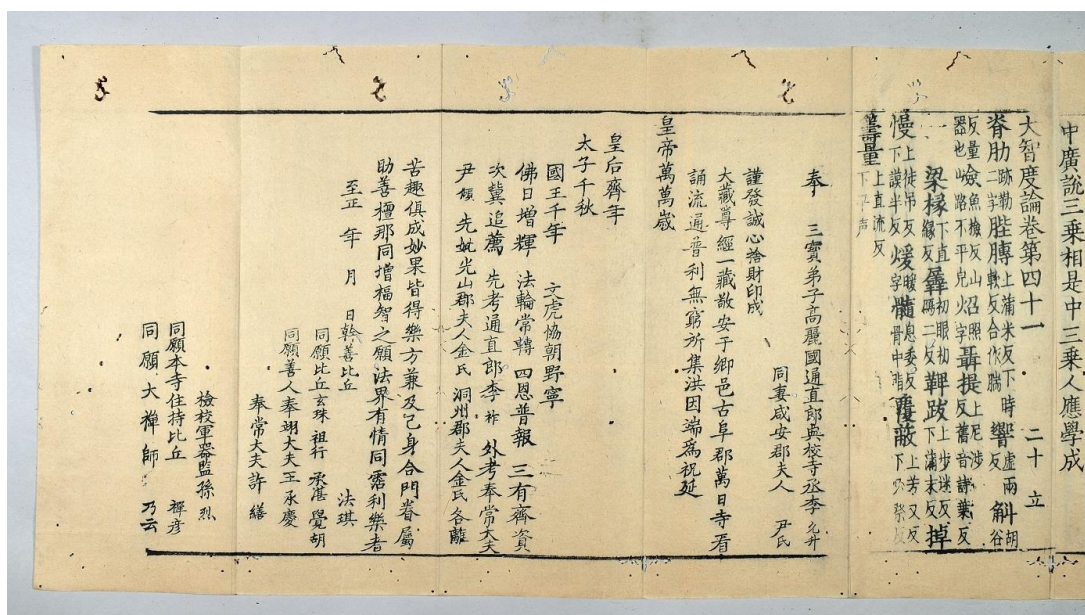 中廣說三乘相是中三乘人應學成
大智度論卷第四十一 二十 立
脊肋 跡勒二字 胜膊 上蒲米反下時軟反合作腨 響 虛兩反 斛 胡谷
反量器也 嶮 魚撿反山路不平皃 召照火字 聶提 上尼涉反舊音 葉反
一 梁椽 下直緣反 犨 初眼初 碼二反 鞞跋 上步迷反下蒲末反 掉
慢 上徒吊反下謨半反 煖 暖字 髓 息委反骨中 覆蔽 上芳又反下必祭反
籌量 上直流反下平声
奉 三寶弟子高麗國通直郎典校寺丞李允升
同妻咸安郡夫人 尹氏
謹發誠心捨財印成
大藏尊經一藏敬安于鄉邑古阜郡萬日寺看
誦流通普利無窮所集洪因端爲祝延
皇帝萬萬歲
皇后齊年
太子千秋
國王千年 文虎協朝野寧
佛日增輝 法輪常轉 四恩普報 三有齊資
次冀追薦 先考通直郎李祚 外考奉常大夫
尹傾 先妣光山郡夫人金氏 洞州郡夫人金氏各離
苦趣俱成妙果皆得樂方兼及己身合門眷屬
助善檀那同增福智之願法界有情同霑利樂者
至正 年 月 日幹善比丘 法琪
同願比丘玄珠 祖行 承湛 覺胡
同願善人奉翊大夫王承慶
奉常大夫許 繕
檢校軍器監孫 烈
同願本寺住持比丘 禪彦
同願大禪師 乃云